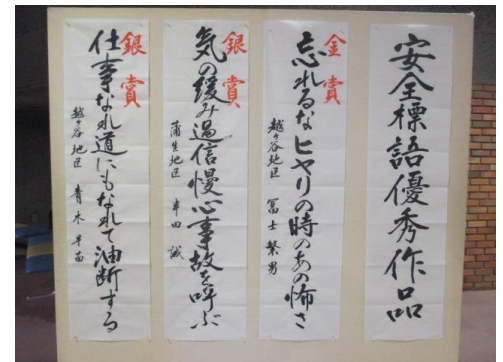 安全標語優秀作品
金賞
忘れるなヒヤリの時のあの怖さ
越ヶ谷地区 冨士繁男
銀賞
気の緩み過信慢心事故を呼ぶ
蒲生地区 車田誠
銀賞
仕事なれ道にもなれて油断する
越ヶ谷地区 青木早苗